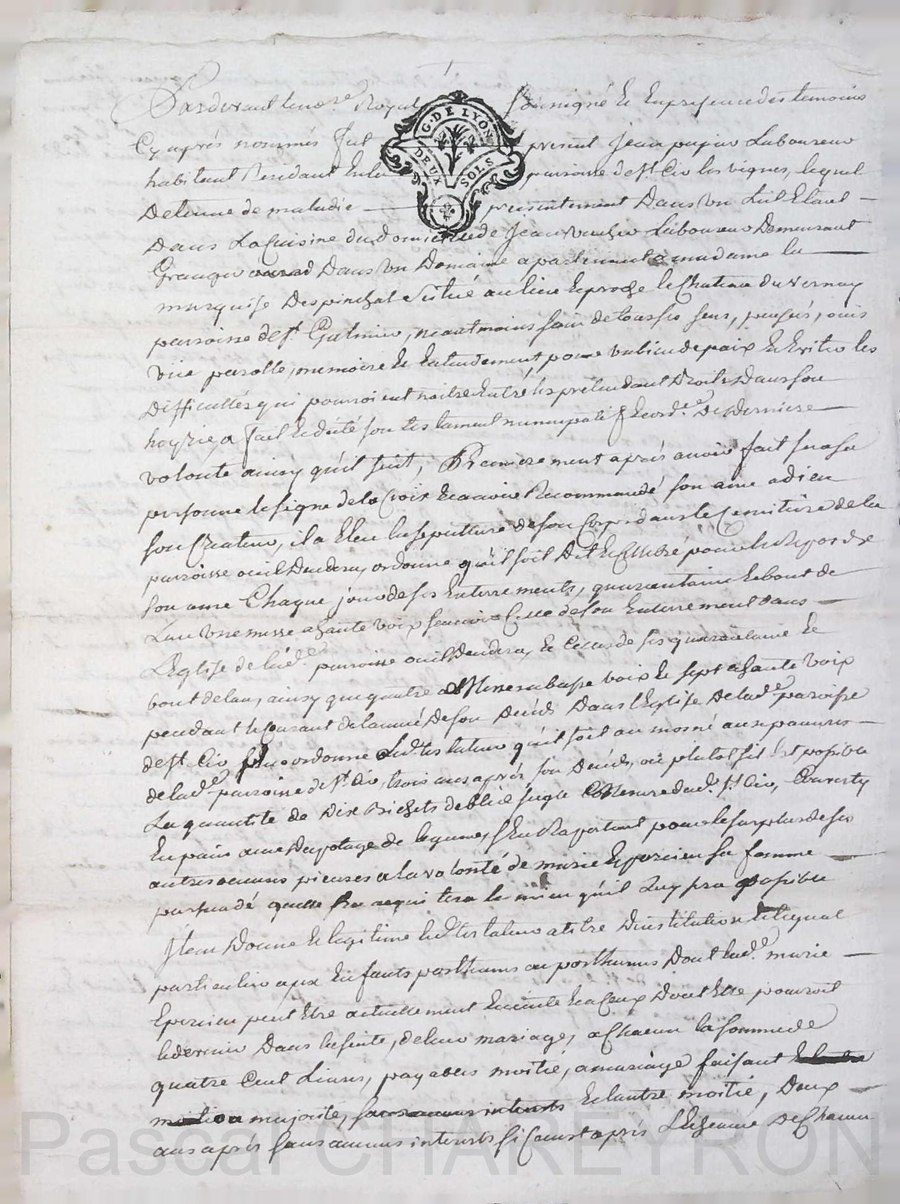 Pardevant le no.re Royal soussigné Et En presence des temoins
Cy après nommés fut present Jean pupier Laboureur
habitant Residant paroisse de st. Cir les vignes, lequel
Detenu de maladie presentement Dans un Lit Etant
Dans La Cuisine du domicile de Jean Laboureur Demeurant
Granger Dans un Domaine apartenant a madame la
marquise Despinchal Situé au lieu Et proche le Chateau du vernay
paroisse de st. Galmier, neantmoins sain de tous ses sens, pensés, ouis
vüe parolle, memoire Et Entendement pour un bien de paix Et Eviter les
Difficultés qui pourroient naitre Entre les prétendant Droits Dans son
hoyrie, a fait Et dicté son testament nuncupatif Et ord.e De derniere
volonté ainsy qu'il suit, Premierement après avoir fait sur sa
personne le signe de la Croix Et avoir Recommandé son ame a dieu
son Createur, il a Eleu la sepulture de son Corps dans le Cemitiere de la
paroisse ou il Decedera, ordonne qu'il soit Dit Et Celebré pour le Repos de
son ame Chaque jour de ses Enterrements, quarantaine Et bout de
L'an une messe a haute voix sçavoir Celle de son Enterrement dans
L'Eglise de lad.e paroisse ou il Decedera, Et Celles de ses quarantaine Et
bout de lan, ainsy que quatre a basse voix Et sept a haute voix
pendant le Courant de lannée de son Decès Dans L'Eglise De lad.e paroisse
de st. Cir ordonne Led. testateur qu'il soit aumoné aux pauvres
de lad.e paroisse de st. Cir, trois ans après son Decés, ou plutot sil Est possible
La quantité de Dix Bichets de bled seigle Mesure dud. st. Cir, Convertis
En pain avec Du potage de legumes, s'En Raportant pour le surplus de ses
autres oeuvres pieuses a la volonté de marie Epercieu sa femme
persuadé quelle sen aquittera le mieux qu'il Luy sera possible
Item Donne Et legitime led. testateur a titre D'institution Et legat
particulier aux Enfants posthumes ou posthumes Dont lad.e marie
Epercieu peut Etre actuellement Enceinte Et a Ceux Dont Elle pourroit
l'Etre Dans la suitte, de leur mariage, a Chacun la somme de
quatre Cent Livres, payables moitié, a mariage faisant
ou majorité, Et l'autre moitié, Deux
ans après sans aucuns interets Si Ce nest après L'Echeance De Chacun
Pascal CHAREYRON
G. DE LYON
DEUX SOLS